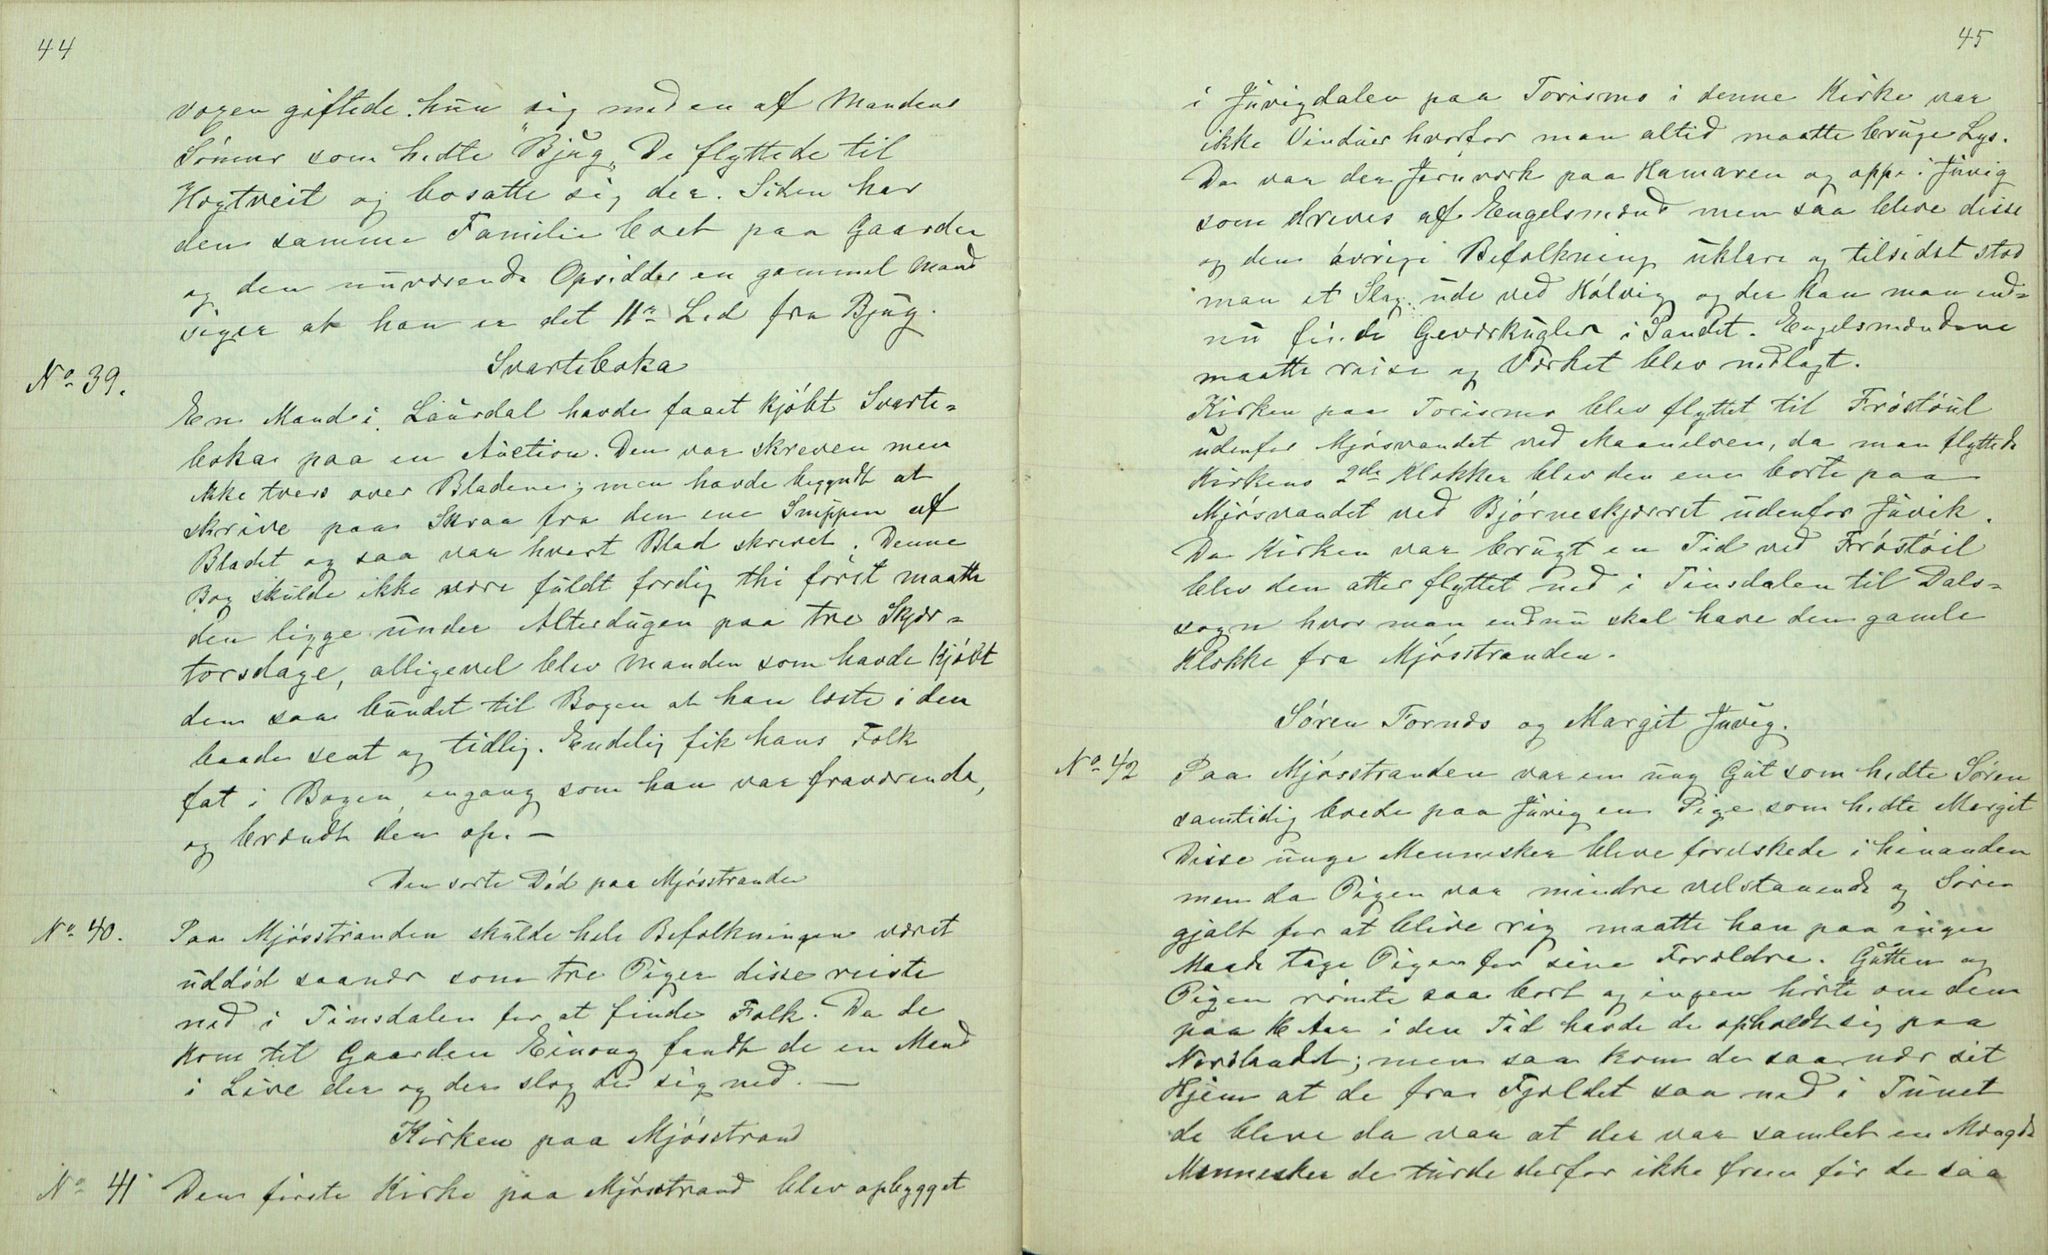 44
voxen giftede hun sig med en af Mandens
Sönner som hedte "Bjug". De flyttede til
Högtveit og bosatte sig der. Siden har
den samme Familie boet paa Gaarden
og den nuværende Opsidder en gammel Mand
siger at han er det 11te Led fra Bjug.
Svarteboka
No 39.
En Mand i Laurdal havde faaet kjöbt Svarte-
boka paa en Auction. Den var skreven men
ikke tvers over Bladene; men havde begyndt at
skrive paa Skraa fra den ene Snippen af
Bladet og saa var hvert Blad skrevet. Denne
Bog skulde ikke være fuldt færdig thi först maatte
den ligge under Alterdugen paa tre Skjær-
torsdage, alligevel blev Manden som havde kjöbt
den saa bundet til Bogen at han læste i den
baade sent og tidlig. Endelig fik hans Folk
fat i Bogen engang som han var fraværende,
og brændt den op. —
Den sorte Död paa Mjösstranden
No 40.
Paa Mjösstranden skulde hele Befolkningen været
uddöd saanær som tre Piger disse reiste
ned i Tinsdalen for at finde Folk. Da de
kom til Gaarden Einong fandt de en Mand
i Live der og der slog de sig ned. —
Kirken paa Mjösstrand
No 41
Den förste Kirke paa Mjösstrand blev opbygget
45
i Juvigdalen paa Torismo i denne Kirke var
ikke Vinduer hvorfor man altid maatte bruge Lys.
Da var der Jernværk paa Hamaren og oppe i Juvig
som dreves af Engelsmænd men saa bleve disse
og den övrige Befolkning uklare og tilsidst stod
man et Slag ude ved Hölvig og der kan man end-
nu finde Geværkugler i Sandet. Engelsmændene
maatte reise og Værket blev nedlagt.
Kirken paa Torismo blev flyttet til Fröstöul
udenfor Mjösvandet ved Maanelven, da man flyttede
Kirkens 2de Klokker blev den ene borte paa
Mjösvandet ved Björneskjærret udenfor Juvik.
Da Kirken var brugt en Tid ved Fröstöil
blev den atter flyttet ned i Tinsdalen til Dals-
sogn hvor man endnu skal have den gamle
Klokke fra Mjösstranden.
Sören Fornæs og Margit Juvig.
No 42
Paa Mjösstranden var en ung Gut som hedte Sören
samtidig boede paa Juvig en Pige som hedte Margit
Disse unge Mennesker bleve forelskede i hinanden
men da Pigen var mindre velstaaende og Sören
gjalt for at blive rig maatte han paa ingen
Maade tage Pigen for sine Forældre. Gutten og
Pigen römte saa bort og ingen hörte om dem
paa Aar i den Tid havde de opholdt sig paa
Nordlandet; men saa kom de saa nær sit
Hjem at de fra Fjeldet saa ned i Tunet
de bleve da var at der var samlet en Mængde
Mennesker de turde derfor ikke frem för de saa